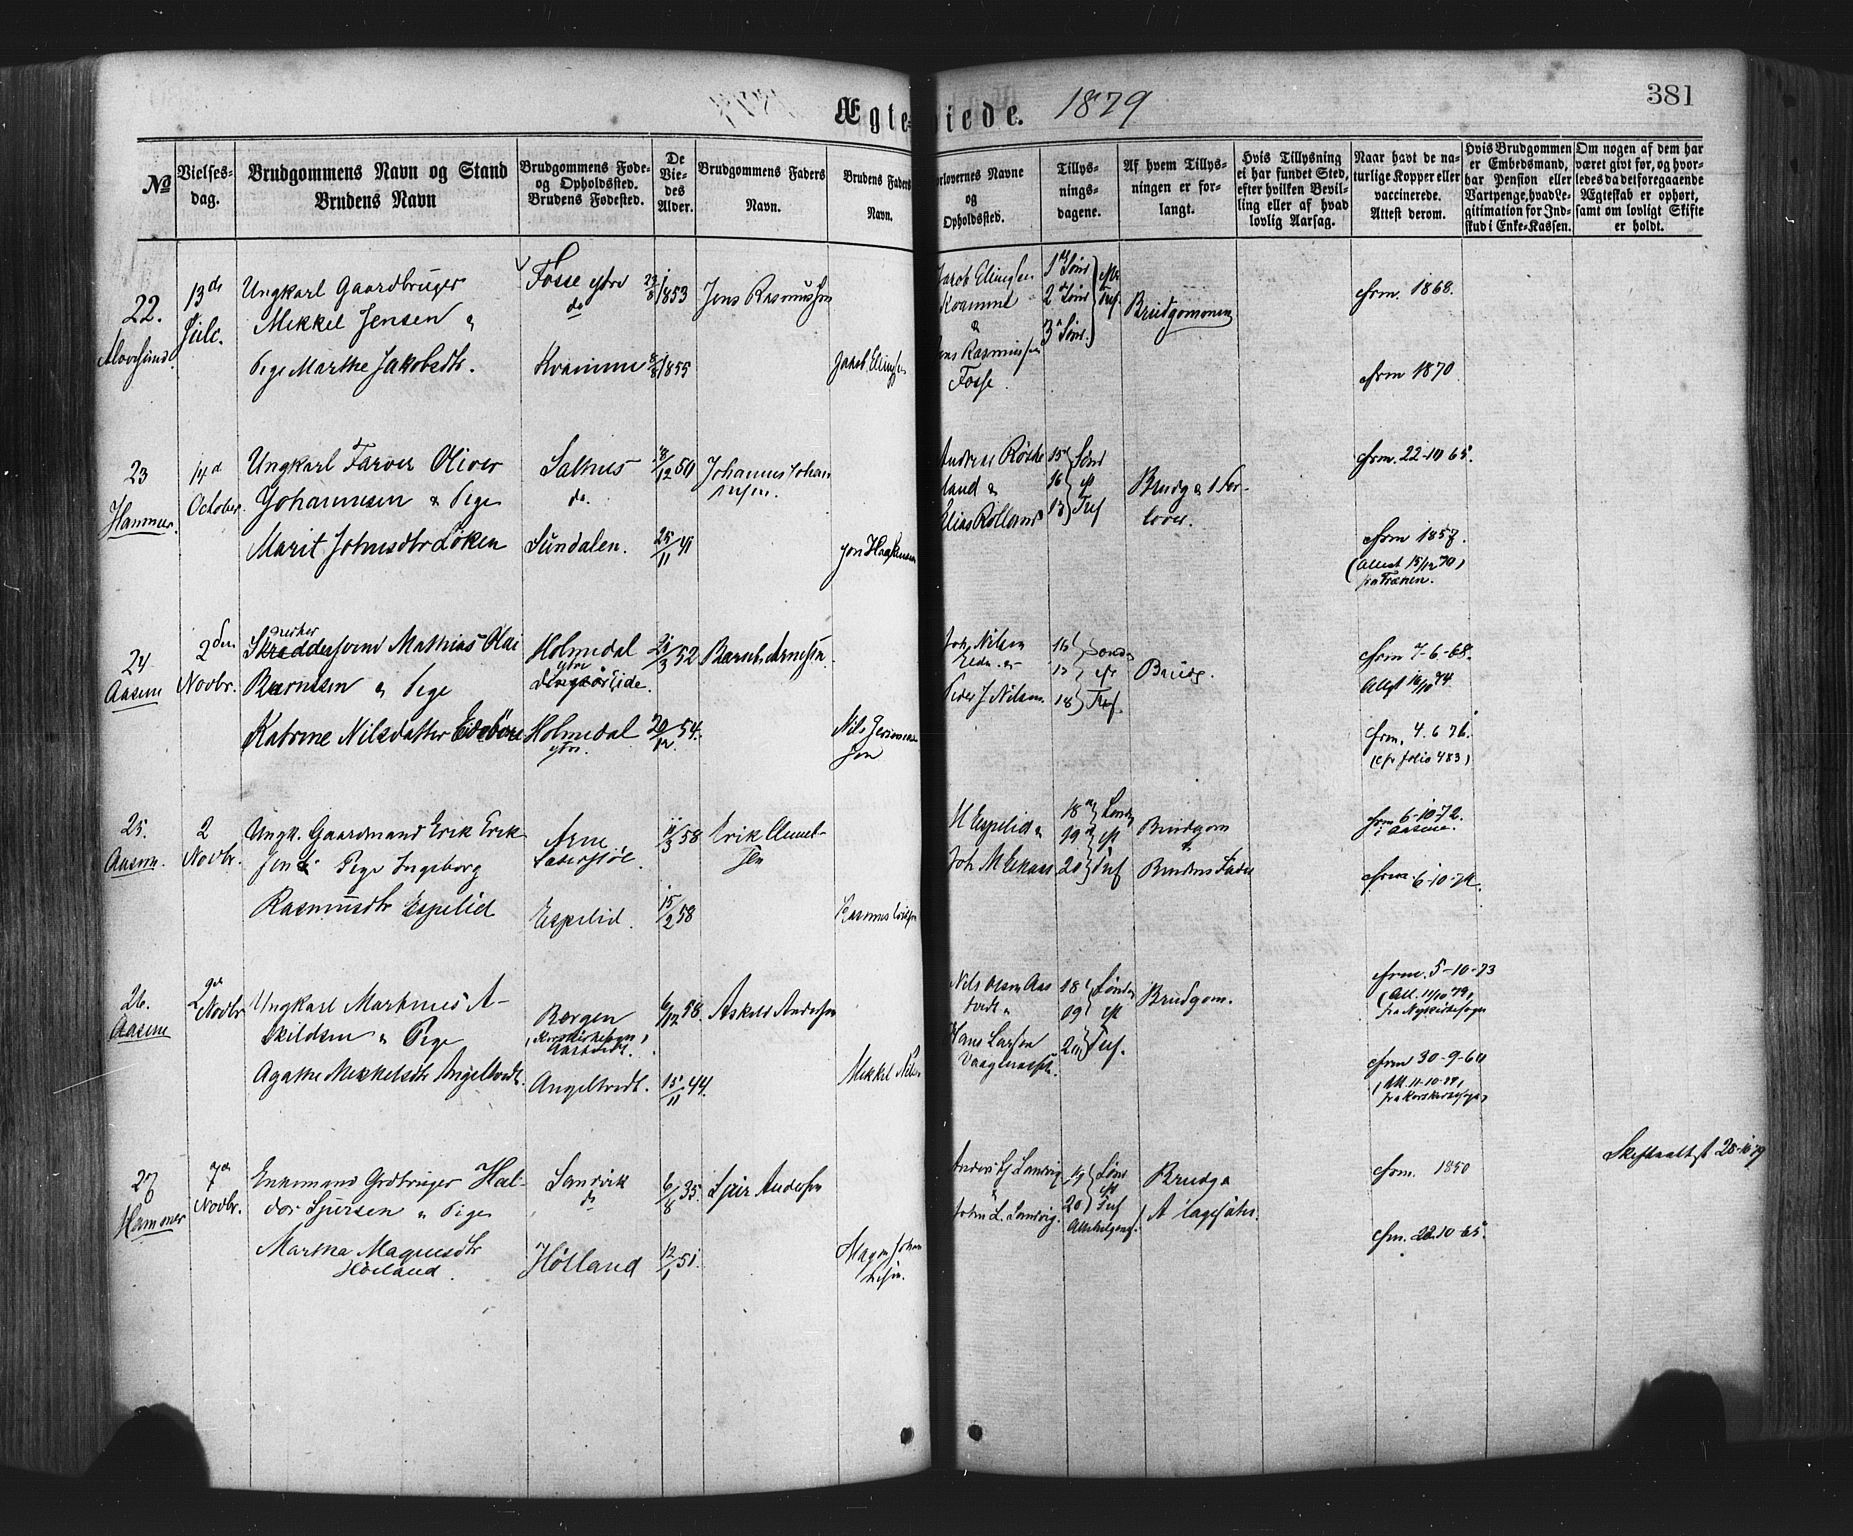 Ægteviede. 1879
381
No
Vielses-
dag.
Brudgommens Navn og Stand
Brudens Navn
Brudgommens Føde-
og Opholdssted.
Brudens Fødested.
De
Vie-
des
Alder.
Brudgommens Faders
Navn.
Brudens Faders
Navn.
orlovernes Navne
og
Opholdssted.
Tillys-
nings-
dagene.
Af hvem Tillys-
ningen er for-
langt.
Hvis Tillysning
ei har fundet Sted,
efter hvilken Bevil-
ling eller af hvad
lovlig Aarsag.
Naar havt de na-
turlige Kopper eller
vaccinerede.
Attest derom.
Hvis Brudgommen
er Embedsmand,
har Pension eller
Vartpenge, hvad Le-
gitimation for Ind-
skud i Enke-Kassen.
Om nogen af dem har
været givt før, og hvor-
ledes da det foregaaende
Ægteskab er ophørt,
samt om lovligt Skifte
er holdt.
22.
13de
Julc.
Ungkarl Gaardbruger
Mikkel Jensen &
Pige Marthe Jakobsdtr.
Fosse ytre
do
Kvamme
23/8 1853
8/8 1855
Jens Rasmussen
Jakob Elingsen
Jacob Elingsen
Kvamme
&
Jens Rasmussen
Fosse.
1 Sønd
2 Sønd
3 Sønd.
eft.
Tref.
Brudgommen
cfrm. 1868.
cfrm 1870.
23
Hammer.
14d
October.
Ungkarl Farver Oliver
Johannesen & Pige
Marit Johnsdtr Løken
Salhus
do.
Sundalen.
18/12 50
25/11 41
Johannes Johan
nesen.
Jon Haakensen
Andreas Røthe
land &
Elias Rolland
15 Sønd
16 eft
17 Tref
Brudg & 1 For-
lover.
cfrm. 22-10 65.
cfrm 1857.
(Attest 15/12 70)
fra Træen.
24
Aasene
2den
Novbr.
Snerker
Skreddersvend Mathias Olai
Berntsen & Pige
Katrine Nilsdatter Eidsbøne
Holmedal
ytre
Holmedal
ytr.
21/3 52
20/12 54.
Bernt Arnesen
Nils Jeronimus
sen
Joh. Nilsen
Eide &
Peder J. Nilsen.
16 Sønd
17 eft
18 Tref.
Brudg.
cfrm 7-6-68.
Attest 16/10 74.
cfrm. 4. 6 76.
(cfr folio 483)
25.
Aasene.
2
Novbr.
Ungk. Gaardmand Erik Erik-
sen & Pige Ingeborg
Rasmusdtr Espelid
Arne
Espelid.
11/3 58
15/2 58
Erik Clemet-
sen
Rasmus
M Espelid &
Joh. M Eknæs
18 Sønd
19 eft
20 Tref
Brudgom
&
Brudens Fader
cfrm 6-10 72.
i Aasene.
cfrm. 6-10-72.
26.
Aasene
2den
Novbr.
Ungkarl Martinus A-
skildsen & Pige
Agathe Mikkelsdtr Angeltvedt.
Bergen
(Korskirkesogn)
Aastvedt.
Angeltvedt.
6/12 58.
15/11 44.
Askild Andersen
Mikkel Nils
Nils Olsen Aas
tvedt &
Hans Larsen
Vaagenæss.
18 Sønd
19 eft
20 Tref.
Brudgom.
cfrm. 5-10-73
(Att. 11/10 79,
fra Nykirkesogn
cfrm 30-9-60
(Att. 11-10-79,
fra Korskirkesogn)
27
Hammer
7de
Novbr.
Enkemand Grdbruger Hal-
dor Sjursen & Pige
Martha Magnusdtr
Høiland.
Sandvik
do
Høiland
6/8 35.
12/1 51.
Sjur Andersen
Magn Johan
nesen.
Anders Hj Sandvig
&
John L. Sandvig.
19 Sønd
20 eft
Tref
Allehelgensf.
Brudg &
cfrm. 1850
cfrm. 22.10-65.
Skifteattest 25-10 79